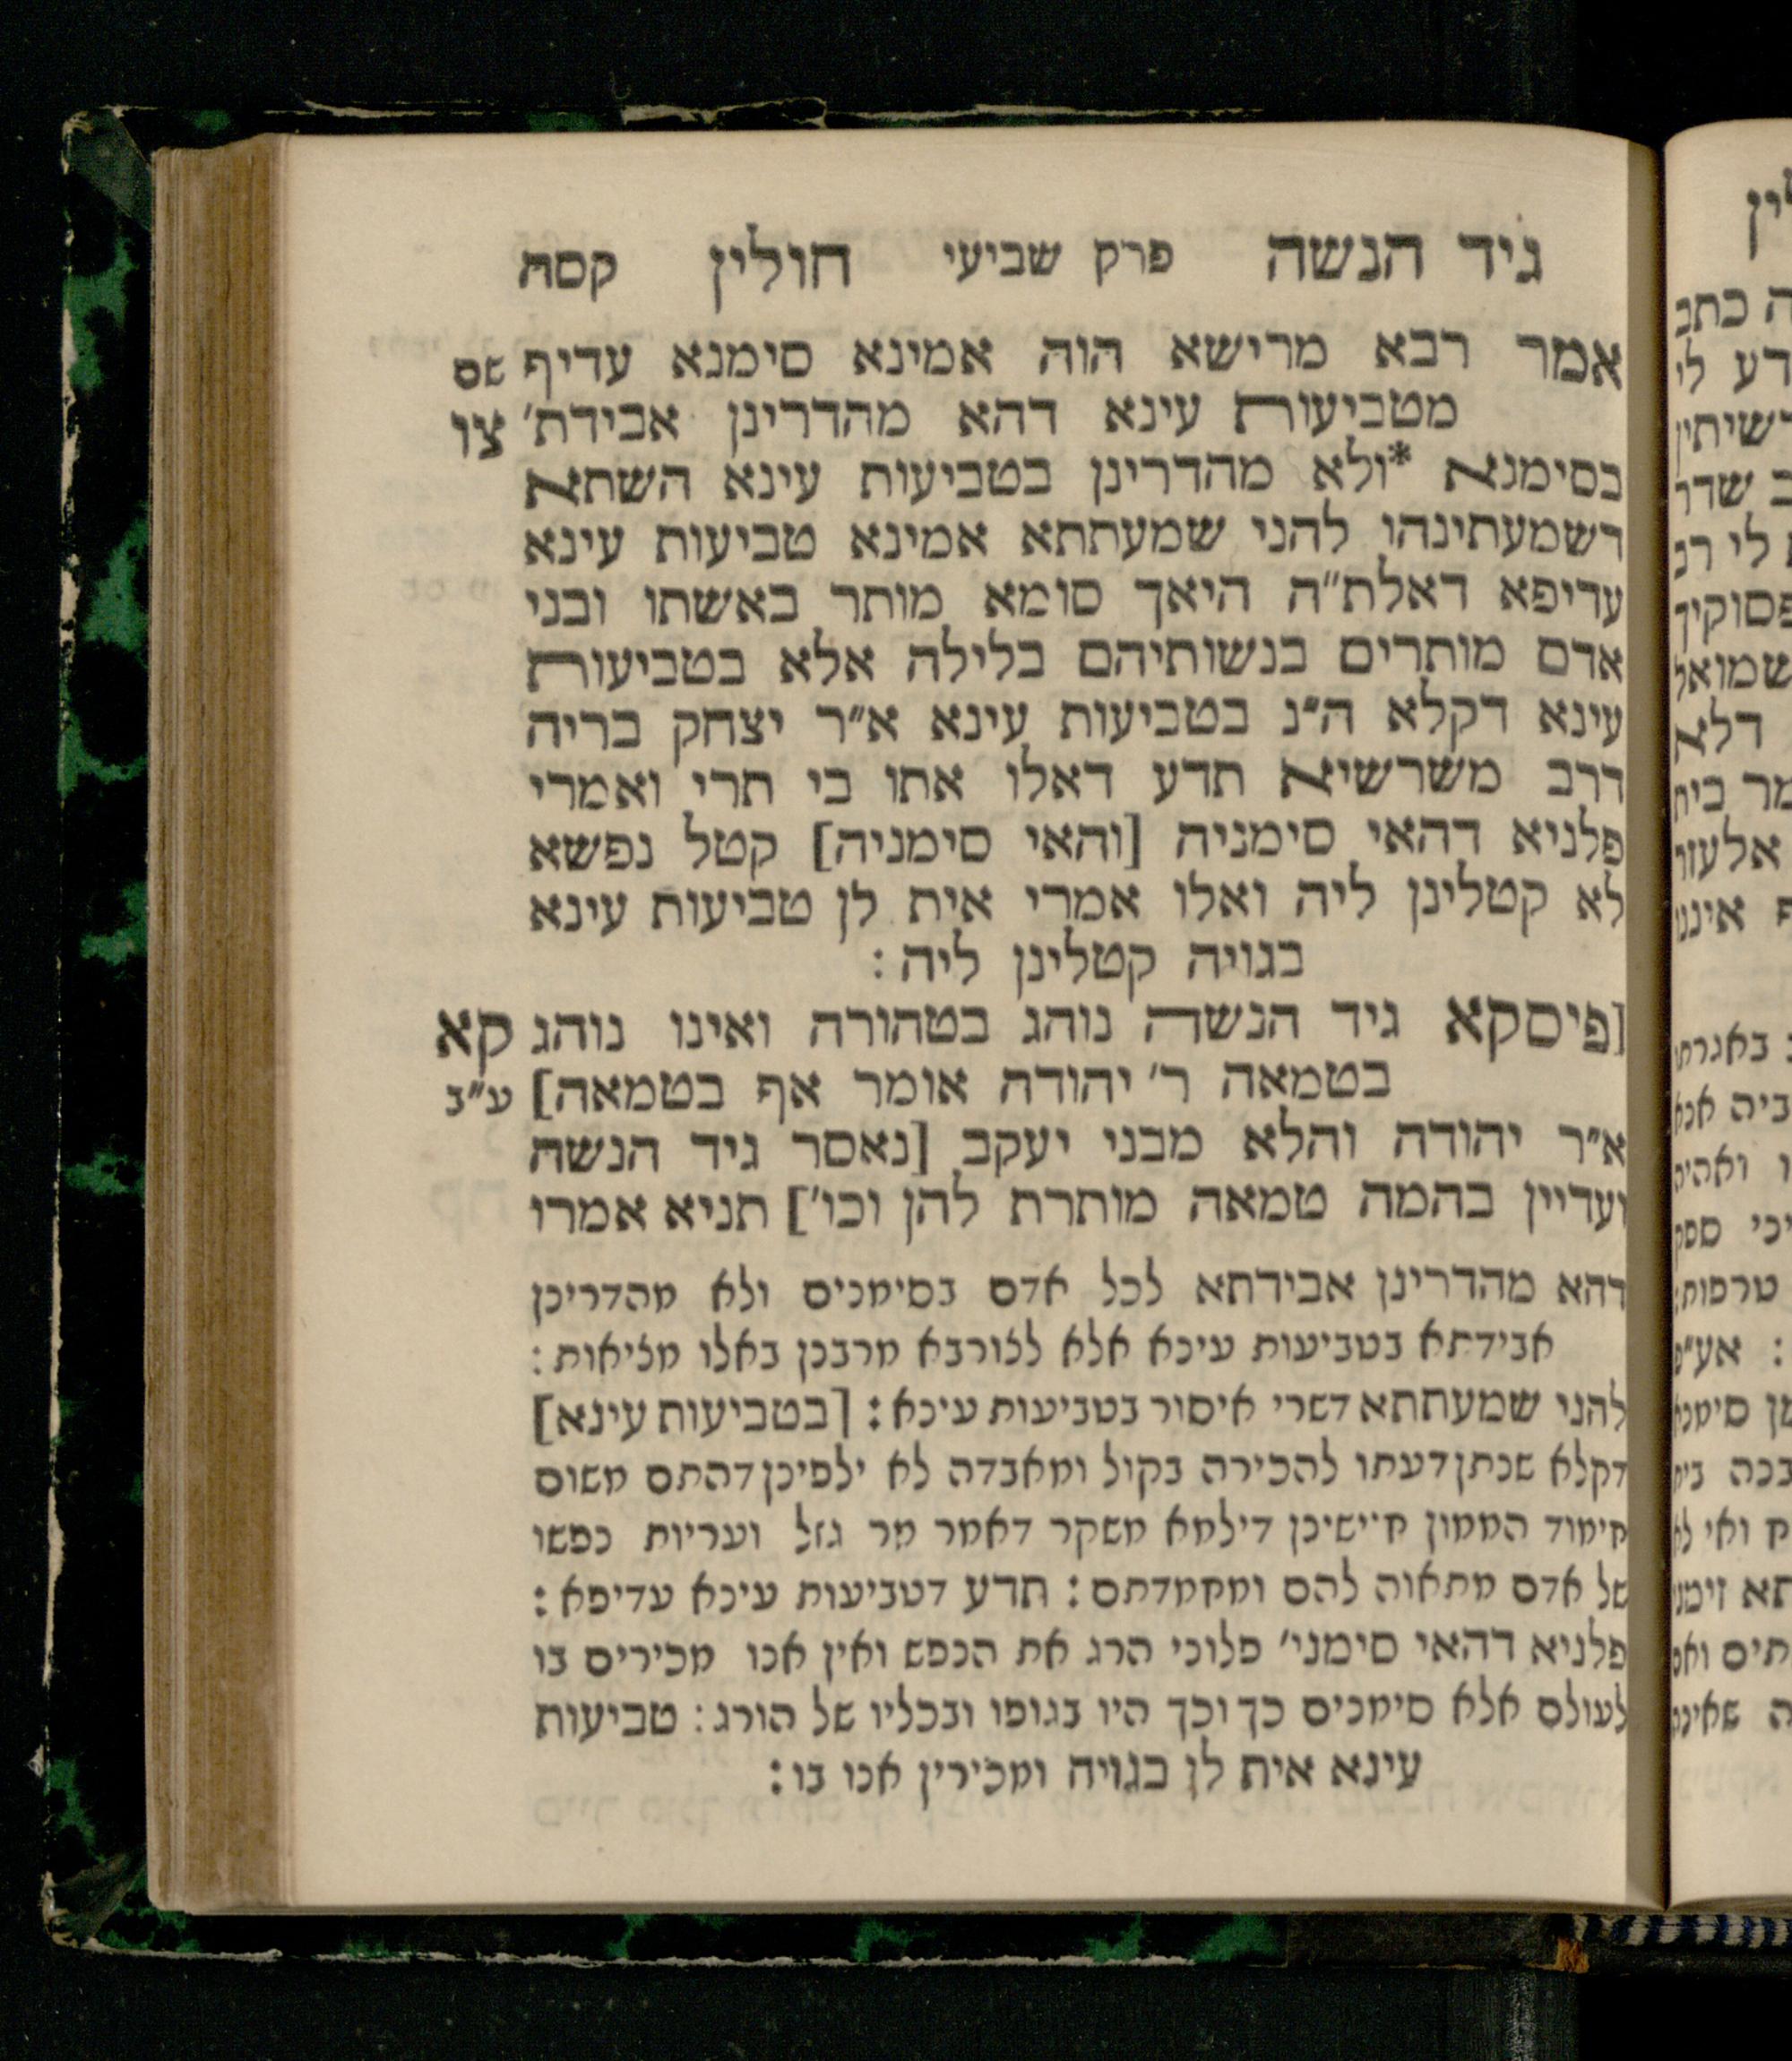 גיד הנשה פרק שביעי חולין קסח
אמר רבא מרישא הוה אמינא סימנא עדיף שם
מטביעות עינא דהא מהדרינן אבידת׳ צו
בסימנא *ולא מהדרינן בטביעות עינא השתא
דשמעתינהו להני שמעתתא אמינא טביעות עינא
עדיפא דאלת״ה היאך סומא מותר באשתו ובני
אדם מותרים בנשותיהם בלילה אלא בטביעות
עינא דקלא ה״נ בטביעות עינא א״ר יצחק בריה
דרב משרשיא תדע דאלו אתו בי תרי ואמרי
פלניא דהאי סימניה [והאי סימניה] קטל נפשא
לא קטלינן ליה ואלו אמרי אית לן טביעות עינא
בגויה קטלינן ליה :
[פיסקא גיד הנשה נוהג בטהורה ואינו נוהג קא
בטמאה ר׳ יהודה אומר אף בטמאה] ע״ב
א״ר יהודה והלא מבני יעקב [נאסר גיד הנשה
ועדיין בהמה טמאה מותרת להן וכו׳] תניא אמרו
דהא מהדרינן אבידתא לכל אדם בסימנים ולא מהדרינן
אבידתא בטביעות עינא אלא לצורבא מרבנן באלו מציאות :
להני שמעתתא דשרי איסור בטביעות עינא : [בטביעות עינא]
דקלא שנתן דעתו להכירה בקול ומאבדה לא ילפינן דהתם משום
חימוד הממון חיישינן דילמא משקר דאמר מר גזל ועריות נפשו
של אדם מתאוה להם ומחמדתם : תדע דטביעות עינא עדיפא :
פלניא דהאי סימני׳ פלוני הרג את הנפש ואין אנו מכירים בו
לעולם אלא סימנים כך וכך היו בגופו ובכליו של הורג : טביעות
עינא אית לן בגויה ומכירין אנו בו :